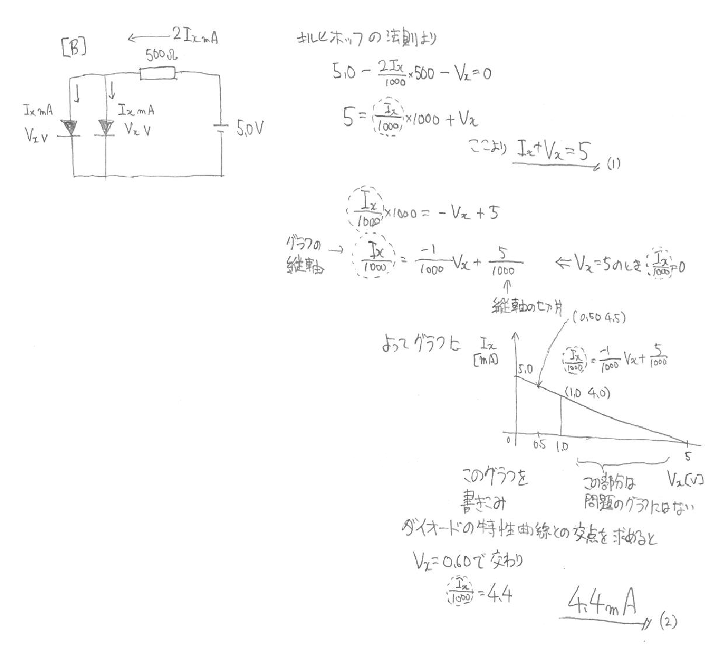 [B]
2Ix mA
500Ω
Ix mA
Vx V
Ix mA
Vx V
5.0V
キルヒホッフの法則より
5.0 - 2Ix/1000 × 500 - Vx = 0
5 = Ix/1000 × 1000 + Vx
ここより Ix + Vx = 5 (1)
Ix/1000 × 1000 = -Vx + 5
グラフの
縦軸 → Ix/1000 = -1/1000 Vx + 5/1000 ← Vx = 5のとき Ix/1000 = 0
↑
縦軸の切片
(0.50 4.5)
よってグラフに
Ix
[mA]
Ix/1000 = -1/1000 Vx + 5/1000
5.0
(1.0 4.0)
0 0.5 1.0 5
Vx [V]
このグラフを
書きこみ
この部分は
問題のグラフにはない
ダイオードの特性曲線との交点を求めると
Vx = 0.60で交わり
Ix/1000 = 4.4
4.4mA (2)